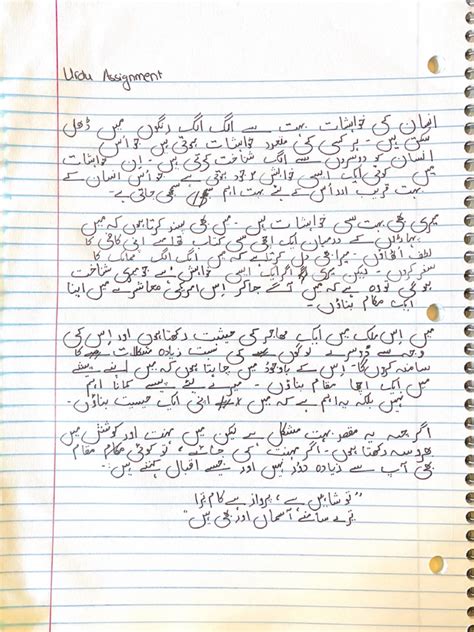 Urdu Assignment
انسان کی خواہشات بہت سے الگ الگ رنگوں میں ڈھل
سکتی ہیں - ہر کسی کی متعدد خواہشات ہوتی ہیں - جو اُس
انسان کو دوسروں سے الگ شناخت کرتی ہیں - اِن خواہشات
میں کوئی ایک ایسی خواہش موجود ہوتی ہے جو اُس انسان کے
بہت قریب اور اُس کے لئے بہت اہم سمجھی جاتی ہے -
میری بھی بہت سی خواہشات ہیں - میں بھی پسند کرتا ہوں کہ میں
پہاڑوں کے درمیان ایک اچھی سی کتاب تھامے اپنی کافی کا
لطف اُٹھاؤں - میرا بھی دل کرتا ہے کہ میں الگ الگ ممالک کا
سفر کروں - لیکن میری اگر ایک ایسی خواہش ہے جو میری شناخت
ہو گی تو وہ ہے کہ میں آگے جا کر اِس امریکی معاشرے میں اپنا
ایک مقام بناؤں -
میں اِس ملک میں ایک مہاجر کی حیثیت رکھتا ہوں اور اِس کی
وجہ سے دُوسرے لوگوں کی نسبت زیادہ مشکلات کا
سامنا کروں گا - اِس کے باوجود میں چاہتا ہوں کہ میں اپنے پیشے
میں ایک اچھا مقام بناؤں - میرے لئے پیسے کمانا اہم
نہیں بلکہ یہ اہم ہے کہ میں اپنی ایک حیثیت بناؤں -
اگرچہ یہ مقصد بہت مشکل ہے لیکن میں محنت اور کوشش میں
بھروسہ رکھتا ہوں - اگر محنت کی جائے، تو کوئی مقام
بھی آپ سے زیادہ دُور نہیں اور جیسے اقبال کہتے ہیں:-
"تو شاہیں ہے، پرواز ہے کام ترا
ترے سامنے آسماں اور بھی ہیں"